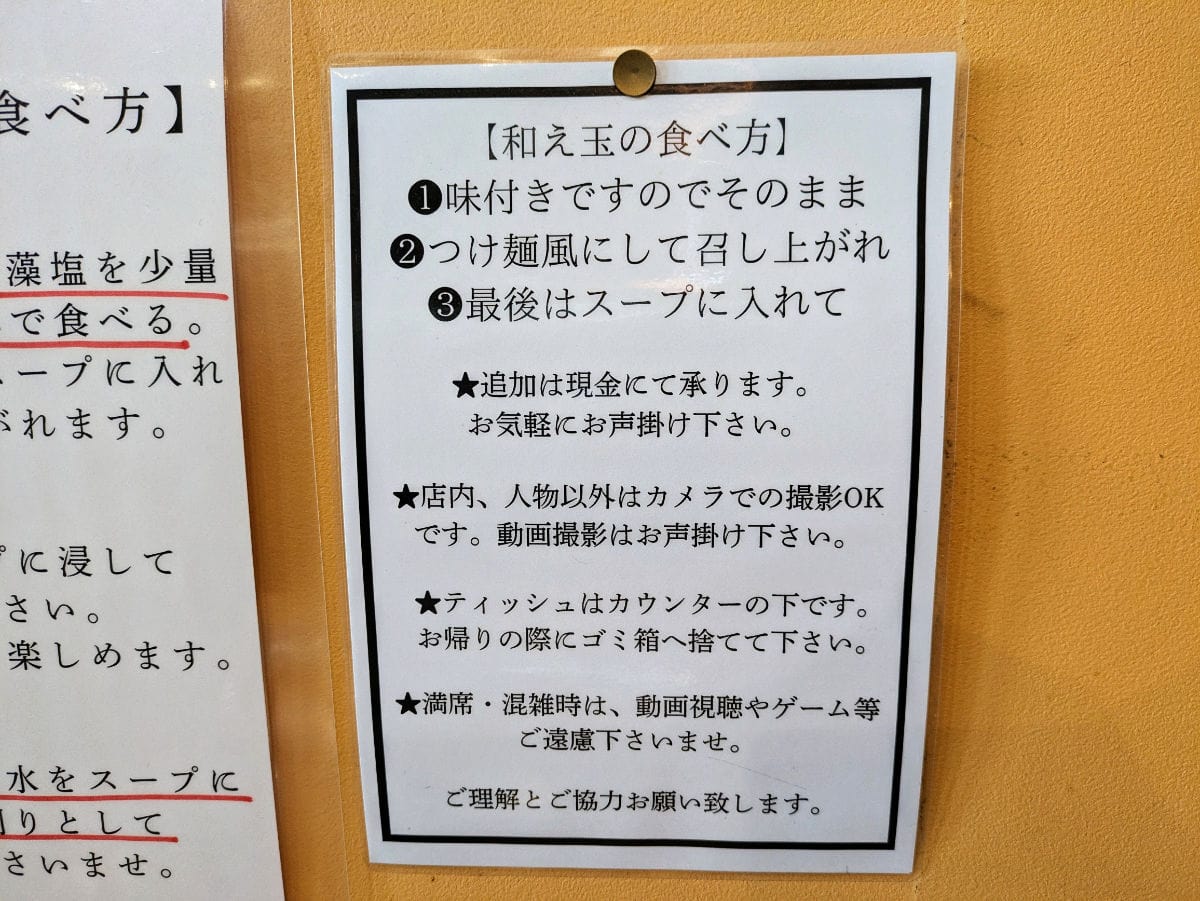 食べ方】
藻塩を少量
で食べる。
ープに入れ
がれます。
に浸して
さい。
楽しめます。
水をスープに
りとして
さいませ。
【和え玉の食べ方】
❶味付きですのでそのまま
❷つけ麺風にして召し上がれ
❸最後はスープに入れて
★追加は現金にて承ります。
お気軽にお声掛け下さい。
★店内、人物以外はカメラでの撮影OK
です。動画撮影はお声掛け下さい。
★ティッシュはカウンターの下です。
お帰りの際にゴミ箱へ捨てて下さい。
★満席・混雑時は、動画視聴やゲーム等
ご遠慮下さいませ。
ご理解とご協力お願い致します。